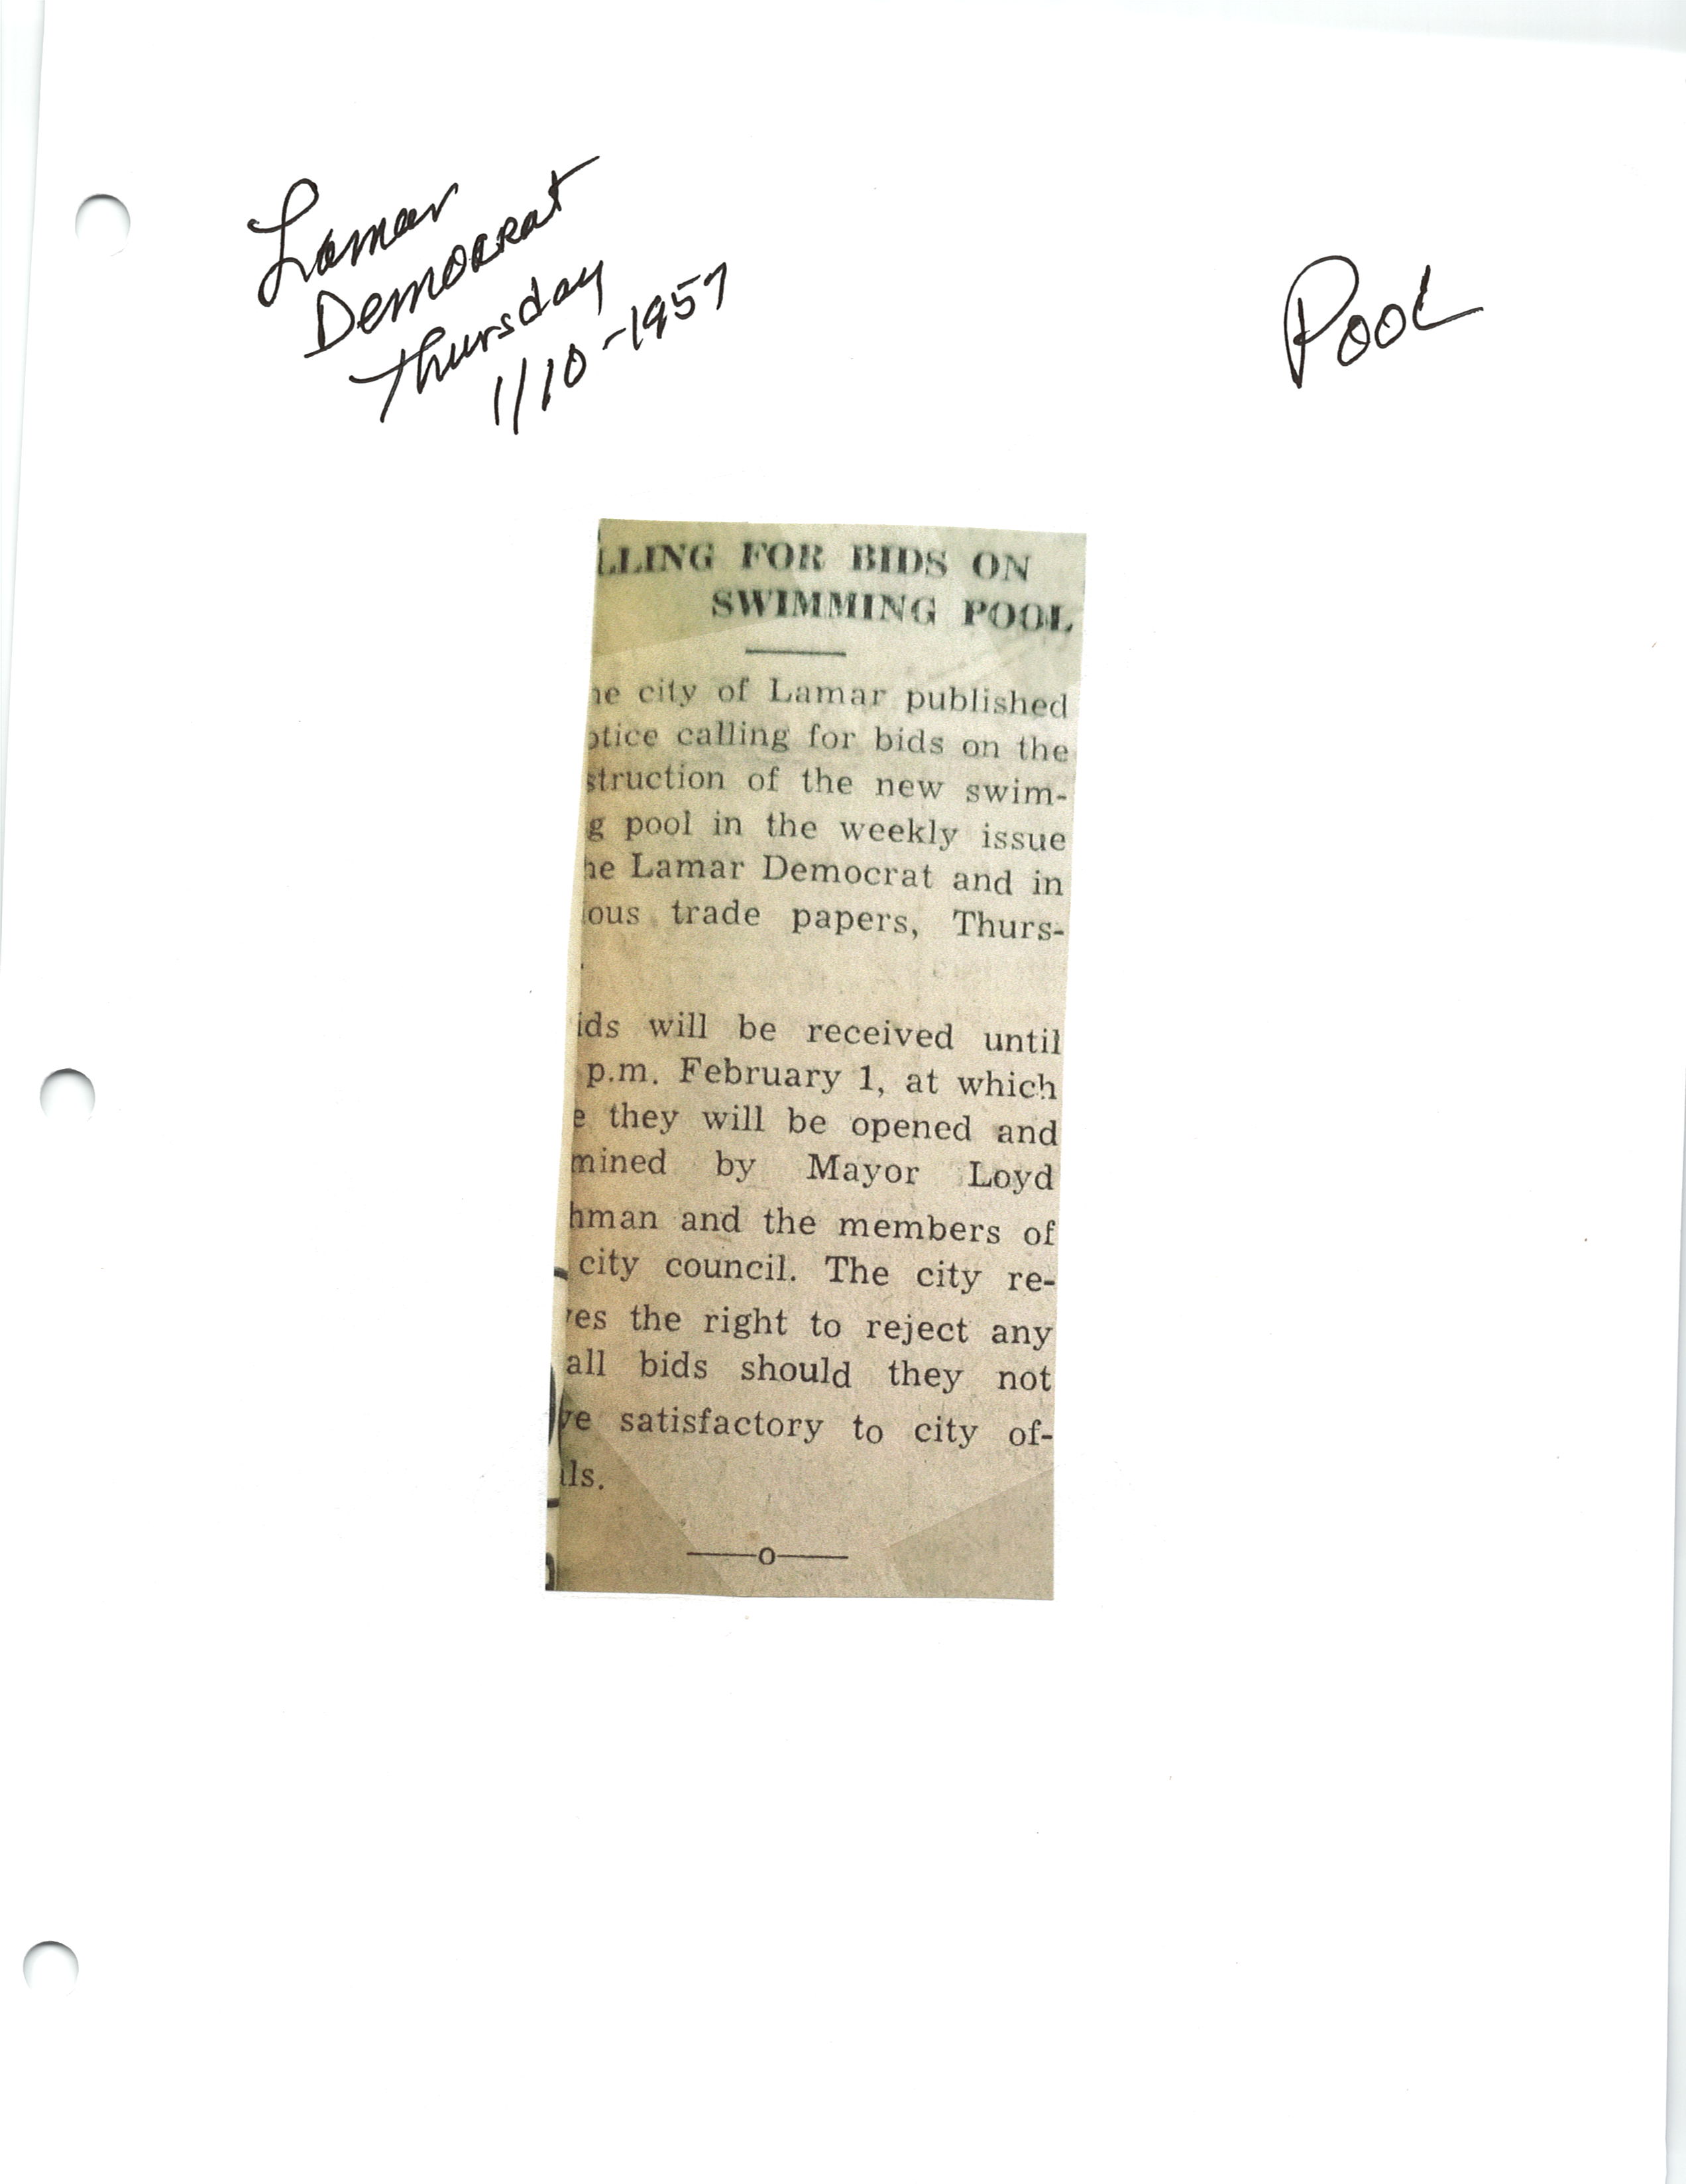 Lamar
Democrat
Thursday
1/10-1957
Pool
LLING FOR BIDS ON
SWIMMING POOL
he city of Lamar published
otice calling for bids on the
struction of the new swim-
g pool in the weekly issue
he Lamar Democrat and in
ious trade papers, Thurs-
.
ids will be received until
p.m. February 1, at which
e they will be opened and
mined by Mayor Loyd
hman and the members of
city council. The city re-
ves the right to reject any
all bids should they not
ve satisfactory to city of-
ials.
—o—